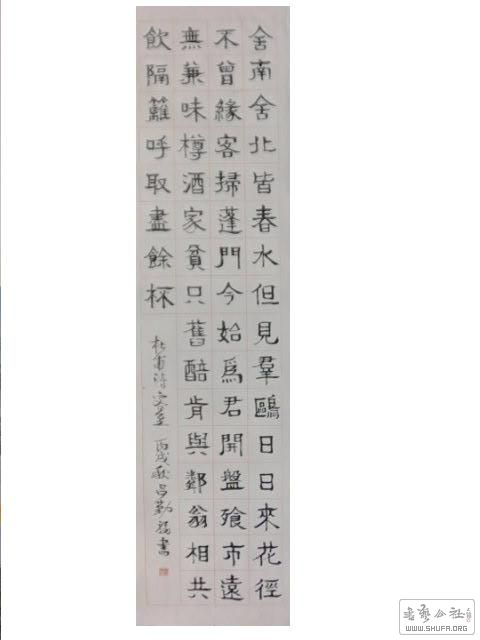 舍南舍北皆春水但見羣鷗日日來花徑
不曾緣客掃蓬門今始爲君開盤飱市遠
無兼味樽酒家貧只舊醅肯與鄰翁相共
飲隔籬呼取盡餘杯
杜甫詩客至 丙戌秋 吕勤書
WWW.SHUFA.ORG